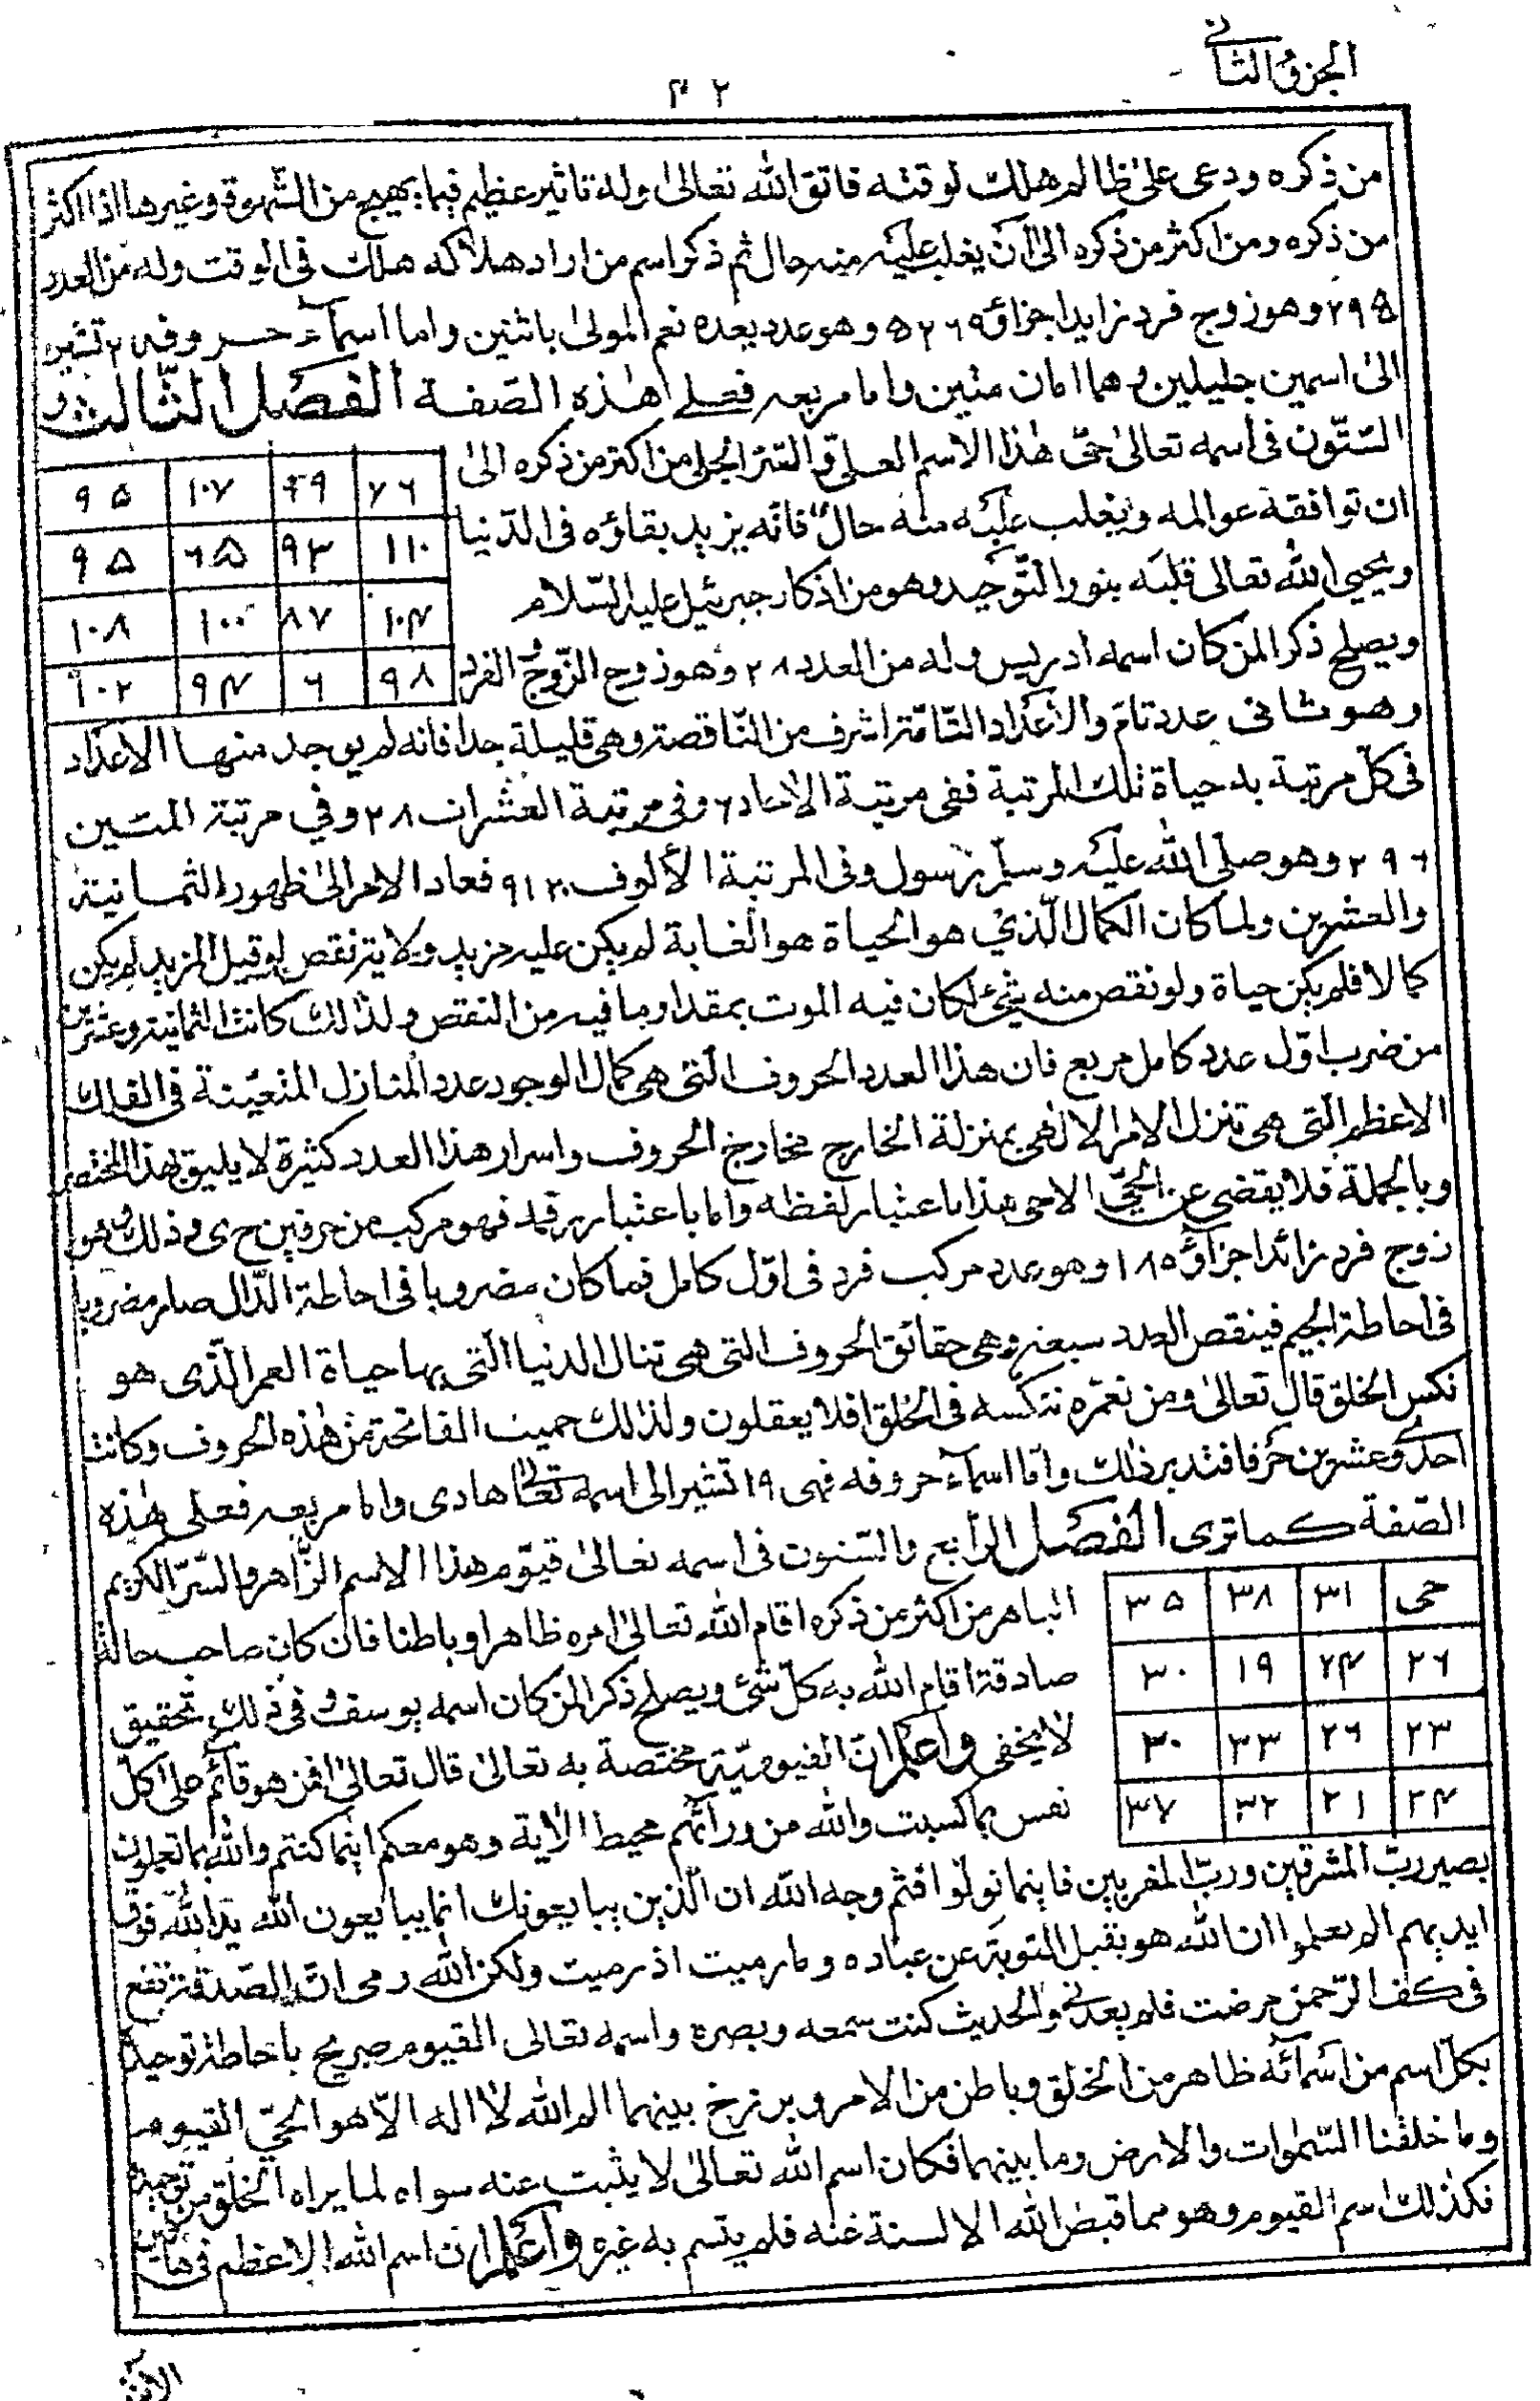 الجزؤ الثانی
۴۲
من ذكره ودعى على ظالم هلك لوقته فاتق الله تعالى وله تاثير عظيم فيما يهيج من الشهوة وغيرها اذا اكثر
من ذكره ومن اكثر من ذكره الى ان يغلب عليه منه حال ثم ذكر اسم من اراد هلاكه هلك فى الوقت وله من العدد
۲۹۵ وهو زوج فرد زايد اجزاؤه ۵۲۶۹ وهو عدد بعده نعم المولى باثنين واما اسمآء حروفه ۲ تشير
الى اسمين جليلين وهما امان متين واما مربعه فعلى هذه الصفة الفصل الثالث و
الستون فى اسمه تعالى حى هذا الاسم العلى والسر الجلى من اكثر من ذكره الى
ان توافقه عوالمه ويغلب عليه منه حال فانه يزيد بقاؤه فى الدنيا
ويحيى الله تعالى قلبه بنور التوحيد وهو من اذكار جبرئيل عليه السلام
ويصلح ذكرا لمن كان اسمه ادريس وله من العدد ۲۸ وهو زوج الزوج الفرد
۷۶ ۹۹ ۱۰۷ ۹۵
۱۱۰ ۹۳ ۶۵ ۹۵
۱۰۴ ۸۷ ۱۰۰ ۱۰۸
۹۸ ۶ ۹۴ ۱۰۲
وهو ثانى عدد تام والاعداد التامة اشرف من الناقصة وهى قليلة جدا فانه لم يوجد منها الاعداد
فى كل مرتبة به حياة تلك المرتبة ففى مرتبة الاحاد ۶ وفى مرتبة العشرات ۲۸ وفي مرتبة المئين
۲۹۶ وهو صلى الله عليه وسلم رسول وفى المرتبة الألوف ۹۱۲۰ فعاد الامر الى ظهور الثمانية
والعشرين ولما كان الكمال الذي هو الحياة هو الغاية لم يكن عليه مزيد ولا يتر نقص لو قبل المزيد لم يكن
كمالا فلم يكن حياة ولو نقص منه شئ لكان فيه الموت بمقدار ما فيه من النقص ولذلك كانت الثمانية وعشرين
من ضرب اول عدد كامل مربع فان هذا العدد الحروف التى هى كمال الوجود عدد المنازل المتعينة فى الفلك
الاعظم التى هى تنزل الامر الالهى بمنزلة الخارج مخارج الحروف واسرار هذا العدد كثيرة لا يليق بهذا المختصر
وبالجملة فلا يقضى عن الحى الا حى هذا باعتبار لفظه واما باعتبار رقمه فهو مركب من حرفين ح ى وذلك وهو
زوج فرد زائد اجزاؤه ۱۸۵ وهو عدد مركب فرد فى اول كامل فما كان مضروبا فى احاطة الدال صار مضروبا
فى احاطة الجيم فينقص العدد سبعة وهى حقائق الحروف التى هى تنال الدنيا التى بها حياة العمر الذى هو
نكس الخلق قال تعالى ومن نعمره ننكسه فى الخلق افلا يعقلون ولذلك حميت الفاتحة من هذه الحروف وكانت
احدى وعشرين حرفا فتدبر ذلك واما اسمآء حروفه فهى ۱۹ تشير الى اسمه تعالى هادى واما مربعه فعلى هذه
الصفة كما ترى الفصل الرابع والستون فى اسمه تعالى قيوم هذا الاسم الزاهر والسر الكريم
الباهر من اكثر من ذكره اقام الله تعالى امره ظاهرا وباطنا فان كان صاحب حالة
صادقة اقام الله به كل شئ ويصلح ذكرا لمن كان اسمه يوسف وفى ذلك تحقيق
لا يخفى واعلم ان القيومية مختصة به تعالى قال تعالى افمن هو قآئم على كل
نفس بما كسبت والله من ورآئهم محيط الاية وهو معكم اينما كنتم والله بما تعملون
حى ۳۱ ۳۸ ۳۵
۲۶ ۲۴ ۱۹ ۳۰
۲۳ ۲۶ ۳۳ ۳۰
۲۴ ۲۱ ۳۲ ۳۷
بصير رب المشرقين ورب المغربين فاينما تولوا فثم وجه الله ان الذين يبايعونك انما يبايعون الله يد الله فوق
ايديهم الم يعلموا ان الله هو يقبل التوبة عن عباده وما رميت اذ رميت ولكن الله رمى ان الصدقة تقع
فى كف الرحمن مرضت فلم يعدنى والحديث كنت سمعه وبصره واسمه تعالى القيوم صريح باحاطة توحيد
بكل اسم من اسمآئه ظاهر من الخلق وباطن من الامر وبرزخ بينهما الم الله لا اله الا هو الحى القيوم
وما خلقنا السموات والارض وما بينهما فكان اسم الله تعالى لا يثبت عنه سواه لما يراه الخلق من توحيده
فكذلك اسم القيوم وهو مما قبض الله الالسنة عنه فلم يتسم به غيره واعلم ان اسم الله الاعظم فى هاتين